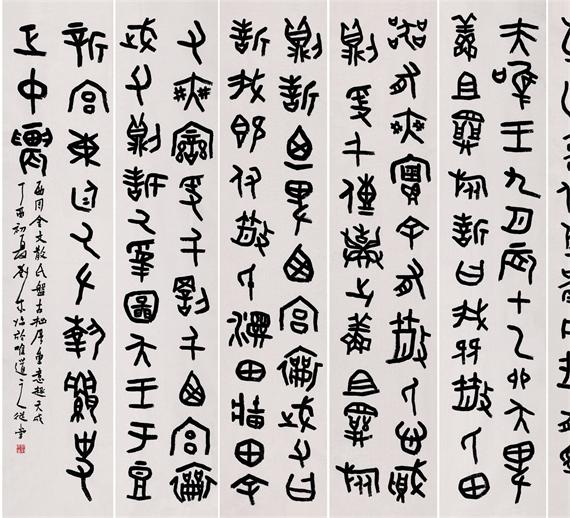 夫唯王九月辰才乙卯夨卑
鮮且𢍰旅誓曰我既散氏田
器有爽實余有散氏心賊
則爰千傳棄之鮮且𢍰旅
則誓卑西宮襄武父曰
誓我既付散氏濕田牆田余
又爽變爰千罰千西宮襄
武父則誓厥受圖夨王于豆
新宮東廷厥左執𦅫史
正中農
西周金文散氏盤古拙厚重意趣天成
丁酉初夏劉於唯道之從